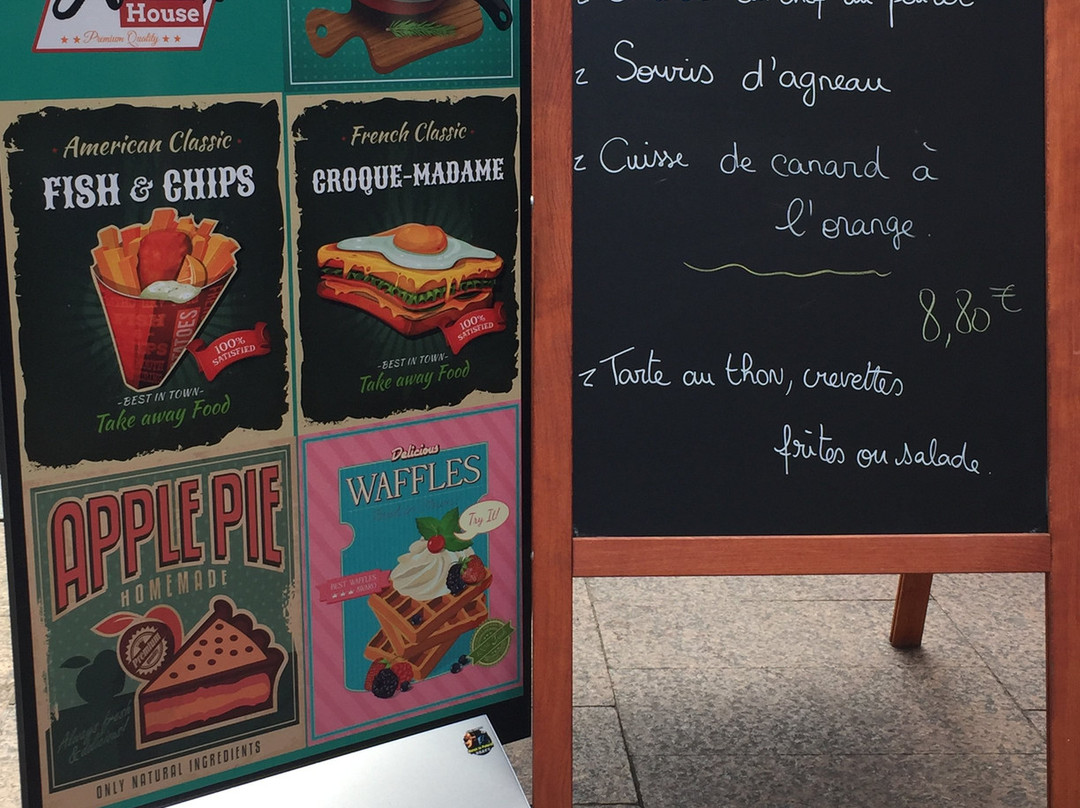 House
Premium Quality
American Classic
FISH & CHIPS
100%
SATISFIED
-BEST IN TOWN-
Take away Food
French Classic
CROQUE-MADAME
100%
SATISFIED
-BEST IN TOWN-
Take away Food
APPLE PIE
HOMEMADE
Premium
Always fresh
& delicious!
ONLY NATURAL INGREDIENTS
Delicious
WAFFLES
Try It!
BEST WAFFLES
AWARD
Souris d'agneau
Cuisse de canard à
l'orange.
8,80€
Tarte au thon, crevettes
frites ou salade.